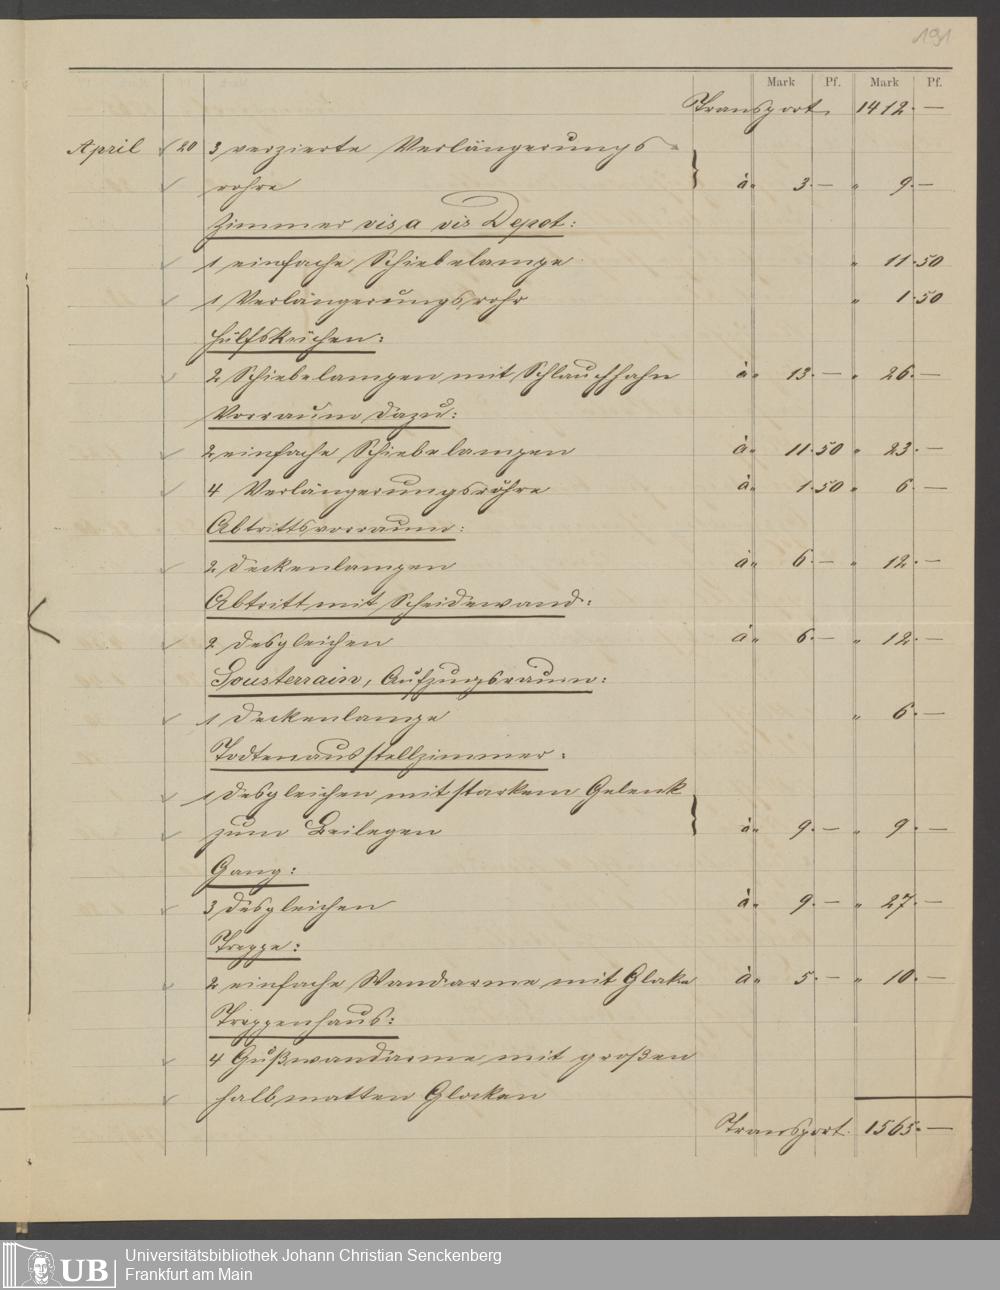 191
Mark Pf. Mark Pf.
Transport 1412.—
April 20 3 verzierte Verlängerungs-
rohre à „ 3.— „ 9.—
Zimmer vis a vis Depot:
1 einfache Schiebelampe „ 11.50
1 Verlängerungsrohr „ 1.50
Hülfsküchen:
2 Schiebelampen mit Schlauchhahn à „ 13.— „ 26.—
Vorraum dazu:
2 einfache Schiebelampen à „ 11.50 „ 23.—
4 Verlängerungsrohre à „ 1.50 „ 6.—
Abtrittsvorraum:
2 Deckenlampen à „ 6.— „ 12.—
Abtritt mit Scheidewand:
2 desgleichen à „ 6.— „ 12.—
Sousterrain, Aufzugsraum:
1 Deckenlampe „ 6.—
Todtenausstellzimmer:
1 desgleichen mit starkem Gelenk
zum Beilegen à „ 9.— „ 9.—
Gang:
3 desgleichen à „ 9.— „ 27.—
Treppe:
2 einfache Wandarme mit Glocke à „ 5.— „ 10.—
Treppenhaus:
4 Gußwandarme mit großen
halbmatten Glocken
Transport 1565.—
UB
Universitätsbibliothek Johann Christian Senckenberg
Frankfurt am Main